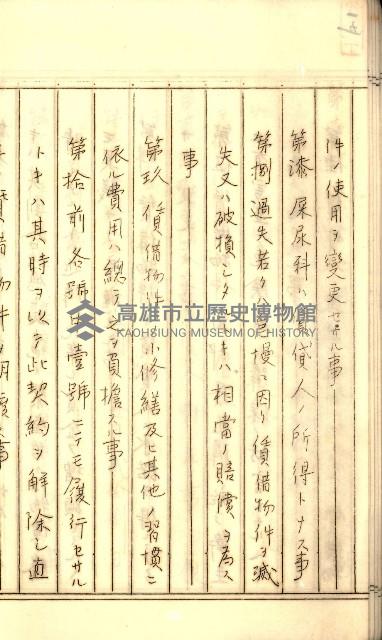 件ノ使用ヲ變更セサル事
第漆 屎尿料ハ賃貸人ノ所得トナス事
第捌 過失若クハ怠慢ニ因リ賃借物件ヲ滅
失又ハ破損シタルトキハ相當ノ賠償ヲ為ス
事
第玖 賃借物件ノ小修繕及ヒ其他ノ習慣ニ
依ル費用ハ總テ之ヲ負擔スル事
第拾 前各號中壹號ニテモ履行セサル
トキハ其時ヲ以テ此契約ヲ解除シ直
高雄市立歷史博物館
KAOHSIUNG MUSEUM OF HISTORY